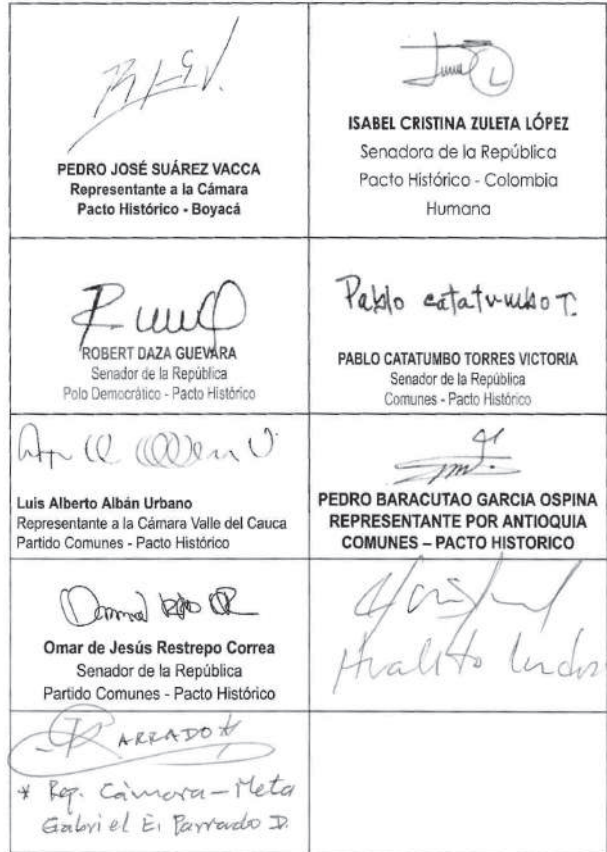 PEDRO JOSÉ SUÁREZ VACCA
Representante a la Cámara
Pacto Histórico - Boyacá
ISABEL CRISTINA ZULETA LÓPEZ
Senadora de la República
Pacto Histórico - Colombia
Humana
ROBERT DAZA GUEVARA
Senador de la República
Polo Democrático - Pacto Histórico
Pablo catatumbo T.
PABLO CATATUMBO TORRES VICTORIA
Senador de la República
Comunes - Pacto Histórico
Luis Alberto Albán Urbano
Representante a la Cámara Valle del Cauca
Partido Comunes - Pacto Histórico
PEDRO BARACUTAO GARCIA OSPINA
REPRESENTANTE POR ANTIOQUIA
COMUNES – PACTO HISTORICO
Omar de Jesús Restrepo Correa
Senador de la República
Partido Comunes - Pacto Histórico
PARRADO
* Rep. Cámara - Meta
Gabriel E. Parrado D.